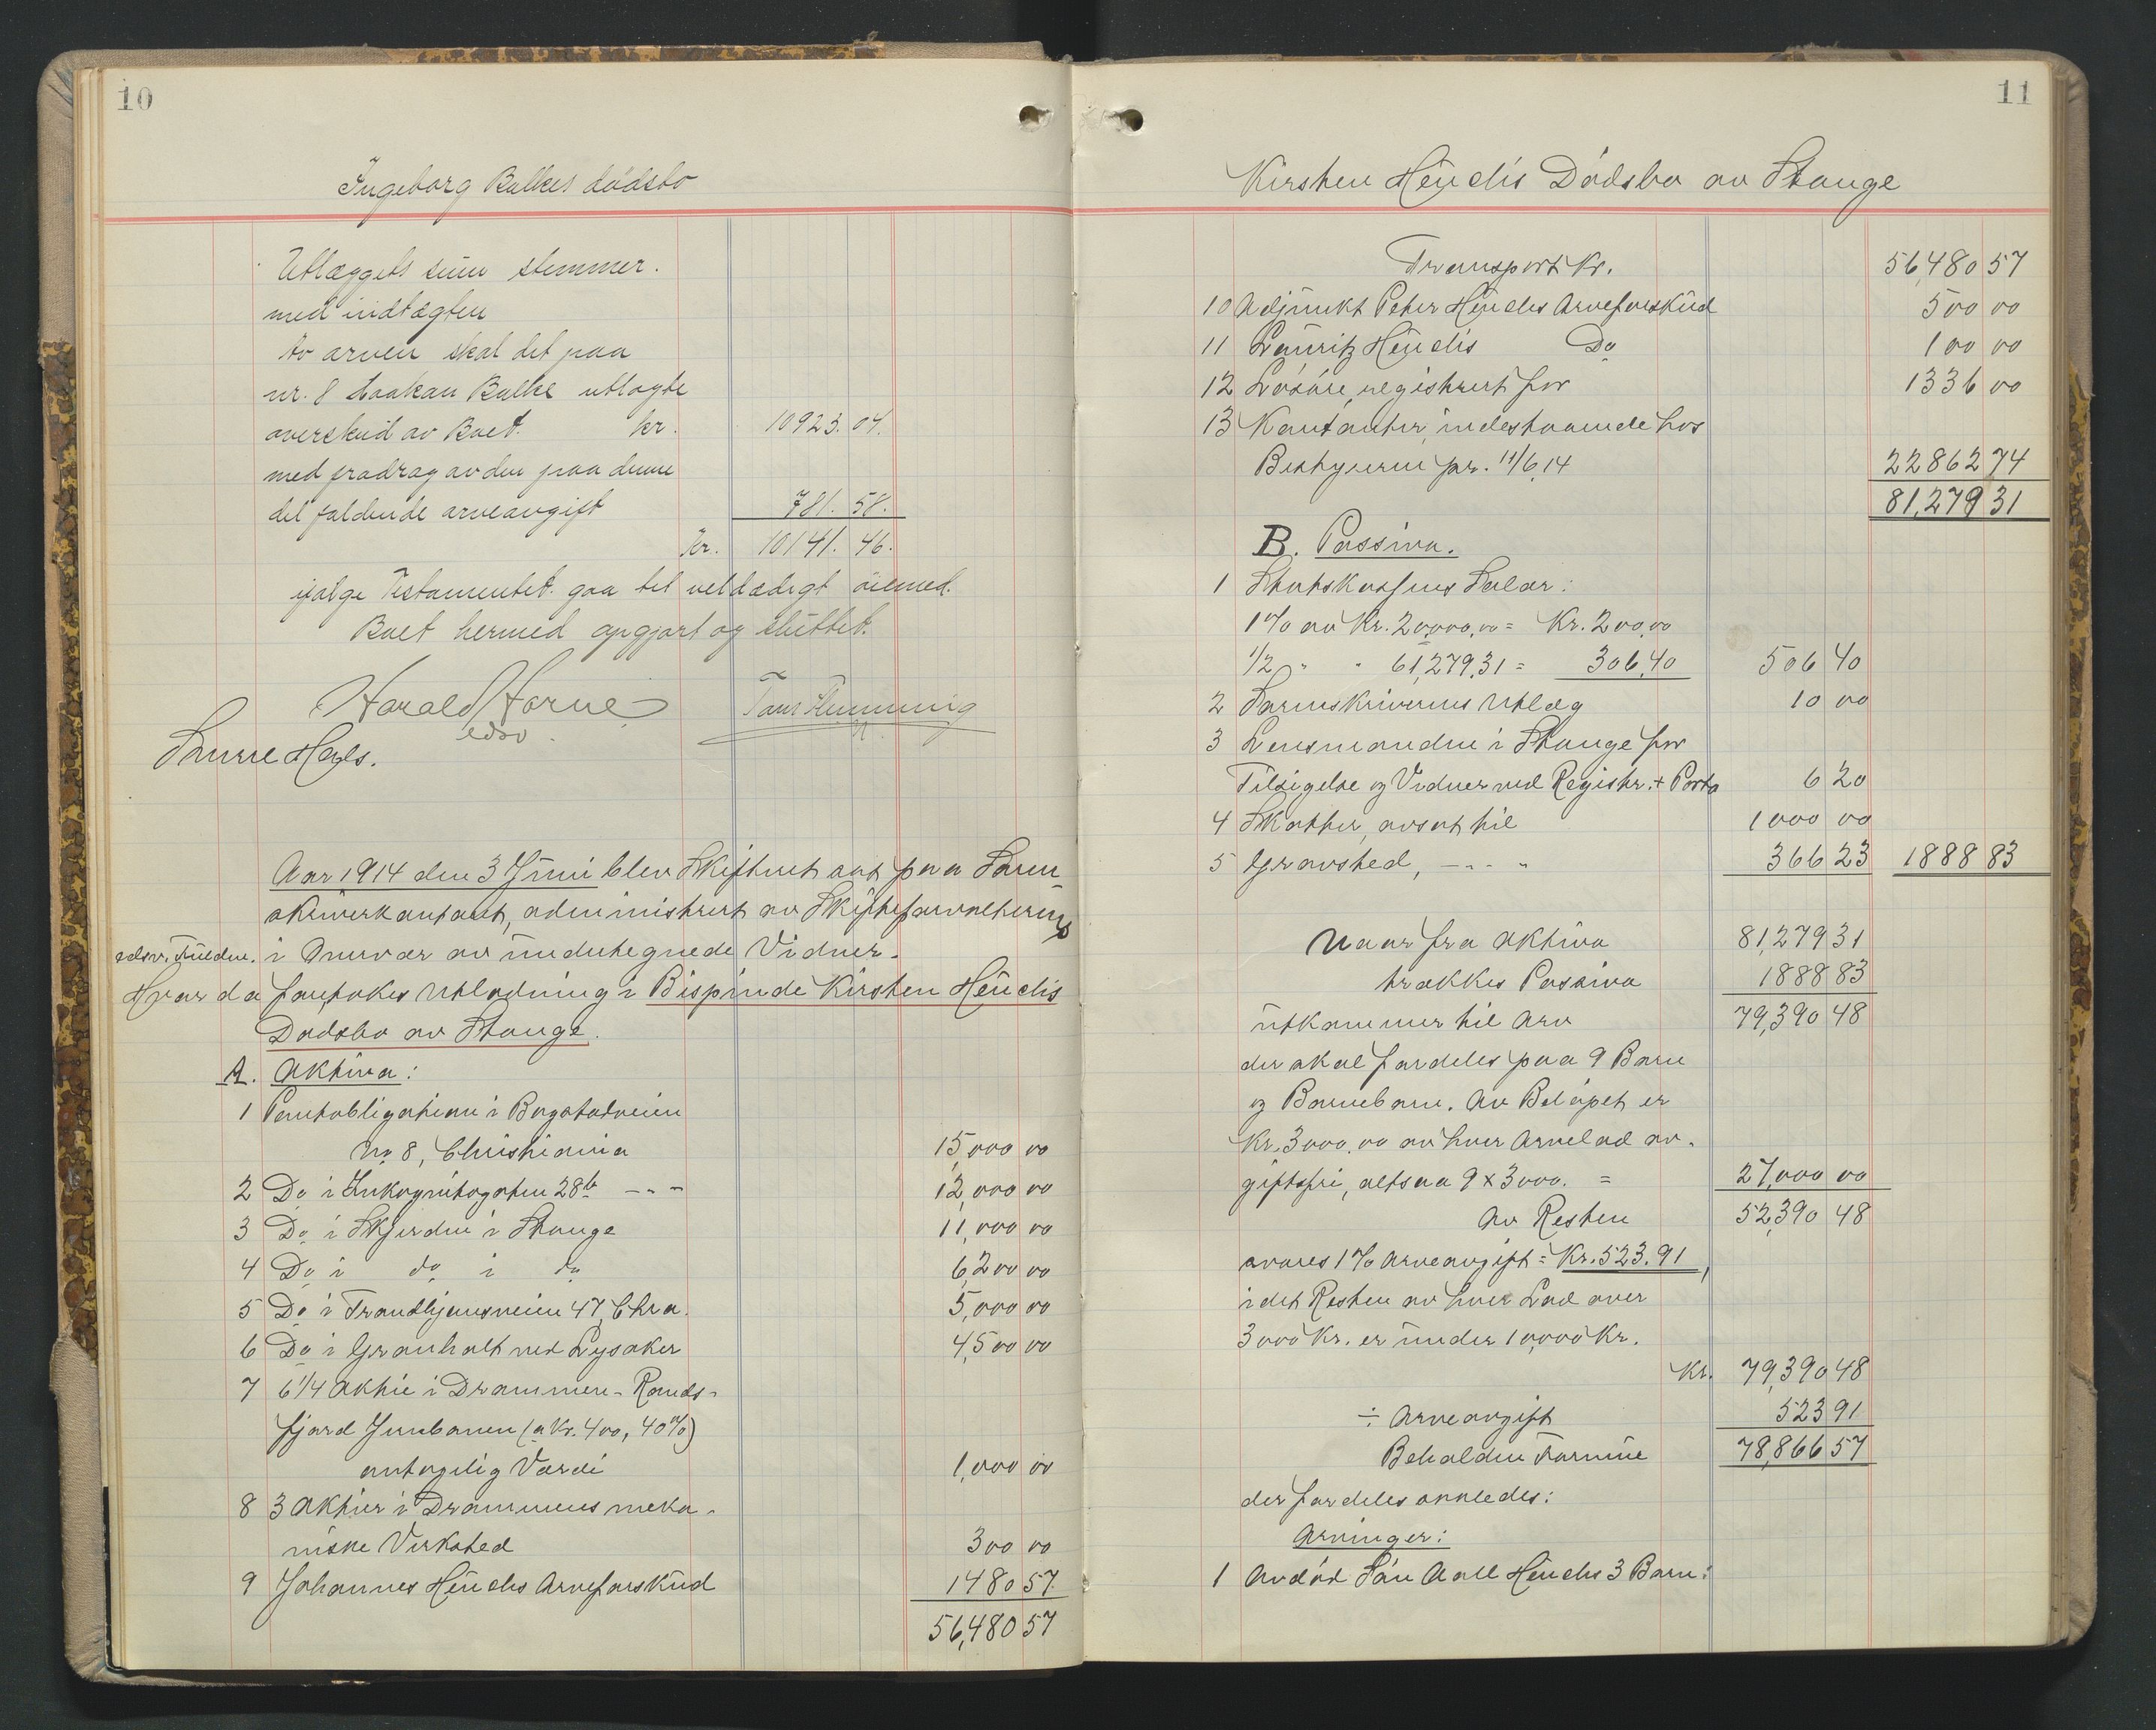 10
Ingeborg Balkes dødsbo
Utlæggets sum stemmer.
med indtægten
Av arven skal det paa
nr. 8 Haakan Balke utlagte
overskud av Boet. kr. 10923. 04.
med fradrag av den paa denne
del faldende arveavgift 781. 58.
Kr. 10141. 46.
ifølge Testamentet. gaa til veldædigt øiemed.
Boet hermed opgjort og sluttet.
Harald Horne
edsv.
Aar 1914 den 3 Juni blev Skifteret sat paa Soren-
skriverkontoret, administrert av Skifteforvalterens
edsv. Fuldm. i Overvær av undertegnede Vidner.
Hvor da foretokes Utlodning i Bispinde Kirsten Heuchs
Dødsbo av Stange.
A. Aktiva:
1 Pantobligation i Bogstadveien
No 8, Christiania 15,000 00
2 Do i Inkognitogaten 28b - " - 12,000 00
3 Do i Skjerden i Stange 11,000 00
4 Do i do i do 6,200 00
5 Do i Trondhjemsveien 47, Chra. 5,000 00
6 Do i Granholt ved Lysaker 4,500 00
7 6 1/4 Aktie i Drammen-Rands-
fjord Jernbanen (a Kr. 400, 40%)
antagelig Værdi 1,000 00
8 3 Aktier i Drammens meka-
niske Verksted 300 00
9 Johannes Heuchs Arveforskud 1480 57
56,480 57
11
Kirsten Heuchs Dødsbo av Stange
Transport Kr. 56,480 57
10 Adjunkt Peter Heuchs Arveforskud 500 00
11 Lauritz Heuchs Do 100 00
12 Løsøre, registrert for 1336 00
13 Kontanter, indestaaende hos
Bestyreren pr. 11/6.14 22862 74
81,279 31
B. Passiva.
1 Statskassens Salær:
1% av Kr. 20,000,00 = Kr. 200,00
1/2 " " 61,279,31 = 306,40 506 40
2 Sorenskriverens Utlæg 10 00
3 Lensmanden i Stange for
Tilsigelse og Vidner ved Registr. + Porto 6 20
4 Skatter, avsat til 1000 00
5 Gravsted, - " - " 366 23 1888 83
Naar fra Aktiva 81,279 31
trækkes Passiva 1888 83
utkommer til Arv 79,390 48
der skal fordeles paa 9 Barn
og Barnebarn. Av Beløpet er
Kr. 3000,00 av hver Arvelod av-
giftsfri, altsaa 9 x 3000. = 27,000 00
Av Resten 52,390 48
svares 1% Arveavgift = Kr. 523.91,
idet Resten av hver Lod over
3000 Kr. er under 10,000 Kr.
Kr. 79,390 48
÷ Arveavgift 523 91
Beholden Formue 78,866 57
der fordeles saaledes:
Arvinger:
1 Avdød Søn Aall Heuchs 3 Barn: